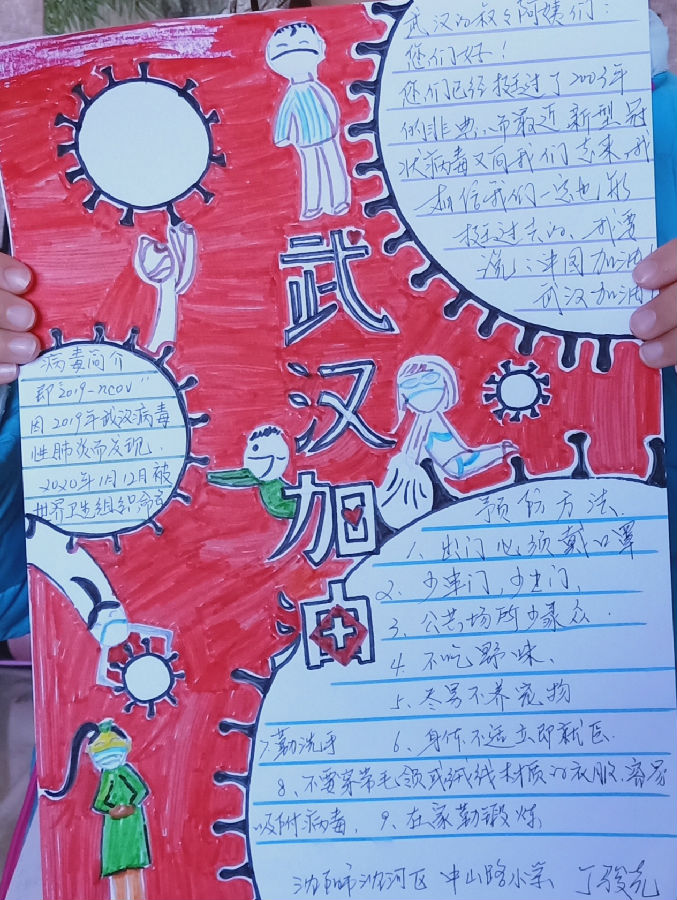 武汉的叔叔阿姨们:
您们好!
您们已经挺过了2003年
的非典、而最近新型冠
状病毒又向我们走来,我
相信我们一定也能
挺过去的、我要
说:中国加油!
武汉加油!
武汉加油
病毒简介
即"2019-nCoV"
因2019年武汉病毒
性肺炎而发现.
2020年1月12日被
世界卫生组织命名
预防方法.
1、出门必须戴口罩
2、少串门,少出门、
3、公共场所少聚众.
4、不吃野味、
5、尽男不养宠物
6、身体不适立即就医.
7、勤洗手
8、不要穿带毛领或绒线材质的衣服.容易
吸附病毒, 9、在家勤锻炼
沈阳市沈河区 中山路小学 丁骏尧